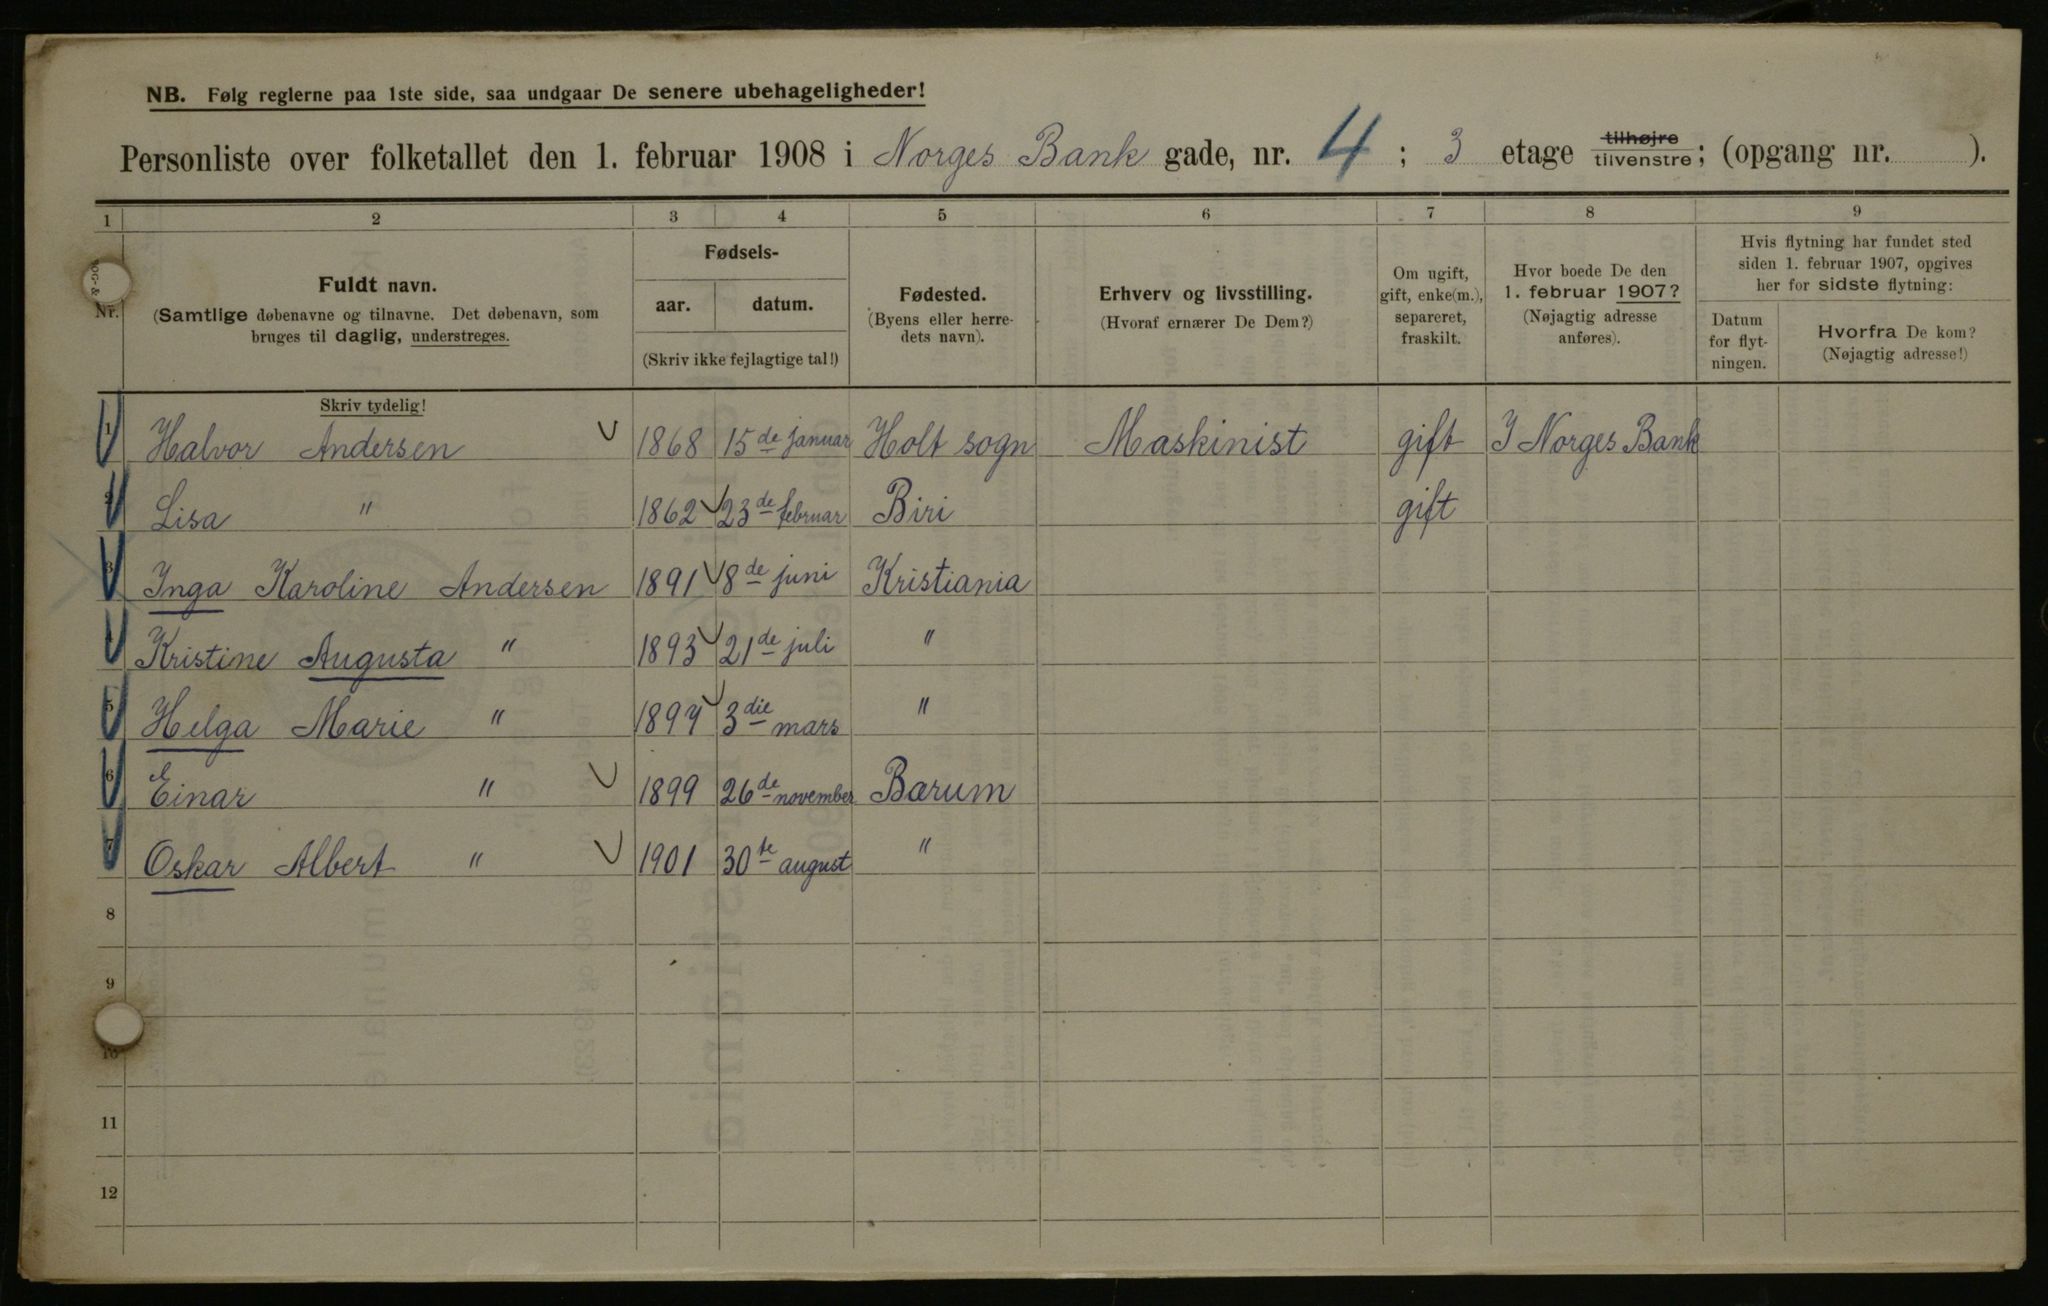 NB. Følg reglerne paa 1ste side, saa undgaar De senere ubehageligheder!
Personliste over folketallet den 1. februar 1908 i Norges Bank gade, nr. 4 ; 3 etage tilhøjre tilvenstre; (opgang nr. ).
1 2 3 4 5 6 7 8 9
Nr.
Fuldt navn.
(Samtlige døbenavne og tilnavne. Det døbenavn, som
bruges til daglig, understreges.
Skriv tydelig!
Fødsels-
aar. datum.
(Skriv ikke fejlagtige tal!)
Fødested.
(Byens eller herre-
dets navn).
Erhverv og livsstilling.
(Hvoraf ernærer De Dem?)
Om ugift,
gift, enke(m.),
separeret,
fraskilt.
Hvor boede De den
1. februar 1907?
(Nøjagtig adresse
anføres).
Hvis flytning har fundet sted
siden 1. februar 1907, opgives
her for sidste flytning:
Datum
for flyt-
ningen.
Hvorfra De kom?
(Nøjagtig adresse!)
1 Halvor Andersen 1868 15de januar Holt sogn Maskinist gift I Norges Bank
2 Lisa " 1862 23de februar Biri gift
3 Inga Karoline Andersen 1891 8de juni Kristiania
4 Kristine Augusta " 1893 21de juli "
5 Helga Marie " 1897 3die mars "
6 Einar " 1899 26de november Bærum
7 Oskar Albert " 1901 30te august "
8
9
10
11
12